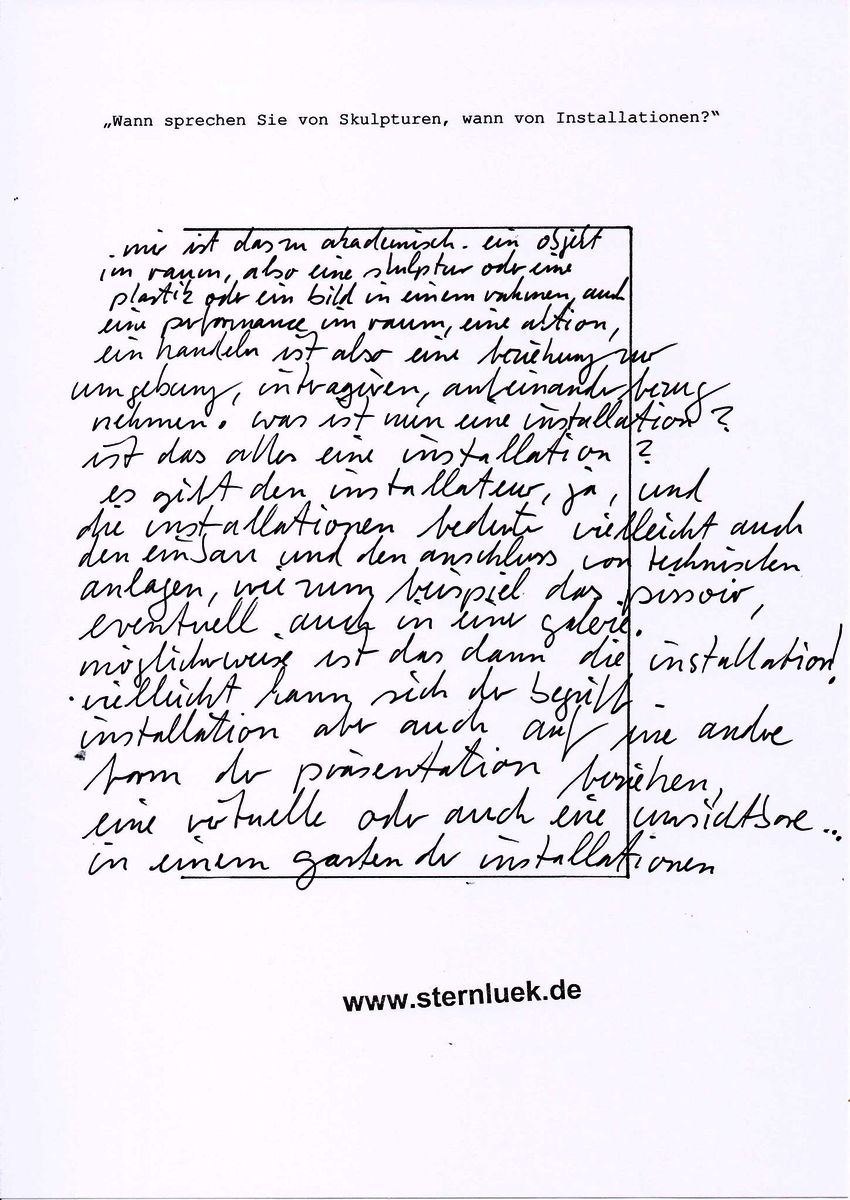 „Wann sprechen Sie von Skulpturen, wann von Installationen?“
mir ist das zu akademisch. ein objekt
im raum, also eine skulptur oder eine
plastik oder ein bild in einem rahmen, auch
eine performance im raum, eine aktion,
ein handeln ist also eine beziehung zur
umgebung, intragiren, aufeinander bezug
nehmen. was ist nun eine installation?
ist das alles eine installation?
es gibt den installateur, ja, und
die installationen bedeute vielleicht auch
den einbau und den anschluss von technischen
anlagen, wie zum beispiel das pissoir,
eventuell auch in eine galerie.
möglicherweise ist das dann die installation!
vielleicht kann sich der begriff
installation aber auch auf eine andre
form der präsentation beziehen,
eine virtuelle oder auch eine unsichtbare...
in einem garten der installationen
www.sternluek.de